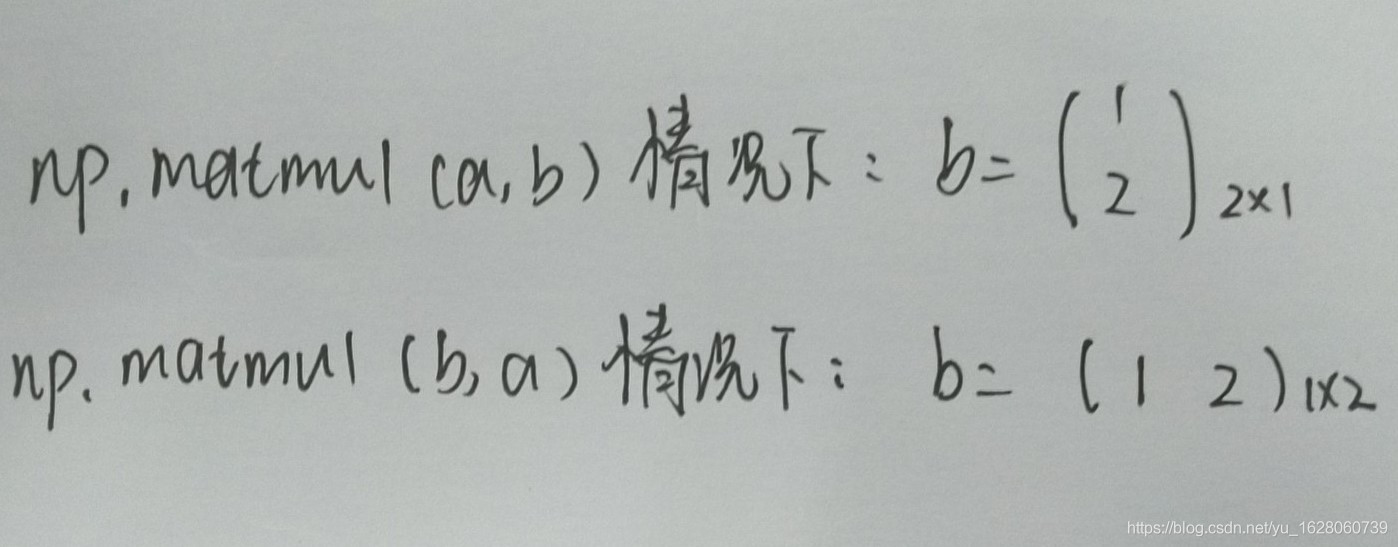 np.matmul(a,b)情况下: b= (1 2) 2×1
np.matmul(b,a)情况下: b= (1 2) 1×2
https://blog.csdn.net/yu_1628060739